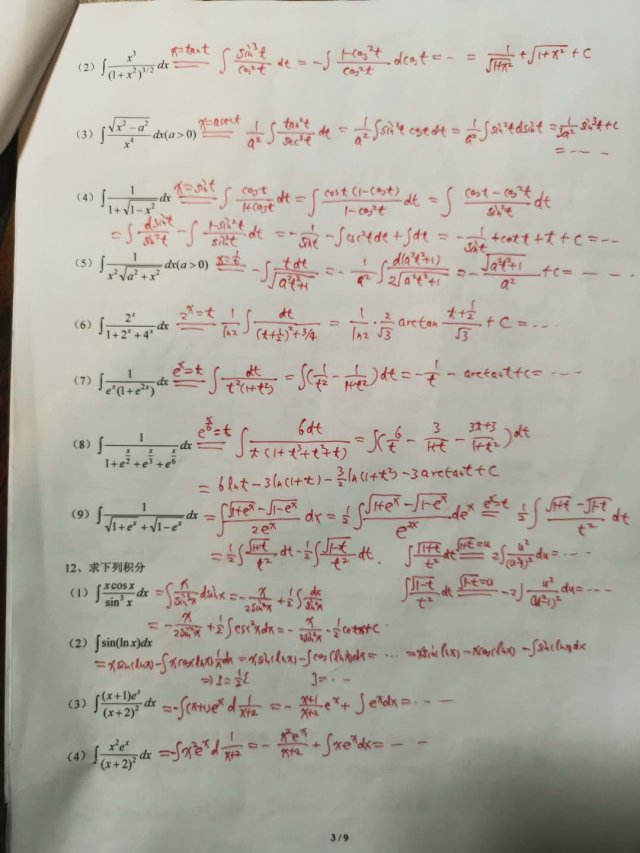 (2) ∫ x³/(1+x²)^{3/2} dx x=tant ∫ sin³t/cos²t dt = -∫ (1-cos²t)/cos²t dcost = -- = 1/√(1+x²) + √(1+x²) + C
(3) ∫ √(x²-a²)/x⁴ dx(a>0) x=asect 1/a² ∫ tan²t/sec³t dt = 1/a² ∫ sin²t cost dt = 1/a² ∫ sin²t dsint = 1/3a² sin³t + C
= -- --
(4) ∫ 1/(1+√(1-x²)) dx x=sint ∫ cost/(1+cost) dt = ∫ cost(1-cost)/(1-cos²t) dt = ∫ (cost-cos²t)/sin²t dt
= ∫ dsint/sin²t - ∫ (1-sin²t)/sin²t dt = -1/sint - ∫csc²t dt + ∫dt = -1/sint + cott + t + C = ---
(5) ∫ 1/(x²√(a²+x²)) dx(a>0) x=1/t -∫ tdt/√(a²t²+1) = -1/a² ∫ d(a²t²+1)/2√(a²t²+1) = -√(a²t²+1)/a² + C = -- --
(6) ∫ 2ˣ/(1+2ˣ+4ˣ) dx 2ˣ=t 1/ln2 ∫ dt/((t+1/2)²+3/4) = 1/ln2 · 2/√3 arctan (t+1/2)/√3 + C = ----
(7) ∫ 1/(eˣ(1+e²ˣ)) dx eˣ=t ∫ dt/(t²(1+t²)) = ∫(1/t² - 1/(1+t²))dt = -1/t - arctant + C = ----
(8) ∫ 1/(1+e^{x/2}+e^{x/3}+e^{x/6}) dx e^{x/6}=t ∫ 6dt/(t(1+t³+t²+t)) = ∫(6/t - 3/(1+t) - (3t+3)/(1+t²))dt
= 6lnt - 3ln(1+t) - 3/2 ln(1+t²) - 3arctant + C
(9) ∫ 1/(√(1+eˣ)+√(1-eˣ)) dx = ∫ (√(1+eˣ)-√(1-eˣ))/2eˣ dx = 1/2 ∫ (√(1+eˣ)-√(1-eˣ))/e²ˣ deˣ eˣ=t 1/2 ∫ (√(1+t)-√(1-t))/t² dt
= 1/2 ∫ √(1+t)/t² dt - 1/2 ∫ √(1-t)/t² dt. ∫ √(1+t)/t² dt √(1+t)=u 2∫ u²/(u²-1)² du = ----
12、求下列积分
(1) ∫ xcosx/sin³x dx = ∫ x/sin³x dsinx = -x/2sin²x + 1/2 ∫ dx/sin²x ∫ √(1-t)/t² dt √(1-t)=u -2∫ u²/(u²-1)² du = ----
= -x/2sin²x + 1/2 ∫csc²xdx = -x/2sin²x - 1/2 cotx + C
(2) ∫ sin(lnx)dx
= xsin(lnx) - ∫xcos(lnx)·1/x dx = xsin(lnx) - ∫cos(lnx)dx = ··· = xsin(lnx) - xcos(lnx) - ∫sin(lnx)dx
(3) ∫ (x+1)eˣ/(x+2)² dx = -∫(x+1)eˣ d 1/(x+2) = -(x+1)/(x+2) eˣ + ∫eˣdx = -- --
(4) ∫ x²eˣ/(x+2)² dx = -∫x²eˣ d 1/(x+2) = -x²eˣ/(x+2) + ∫xeˣdx = -- --
3 / 9